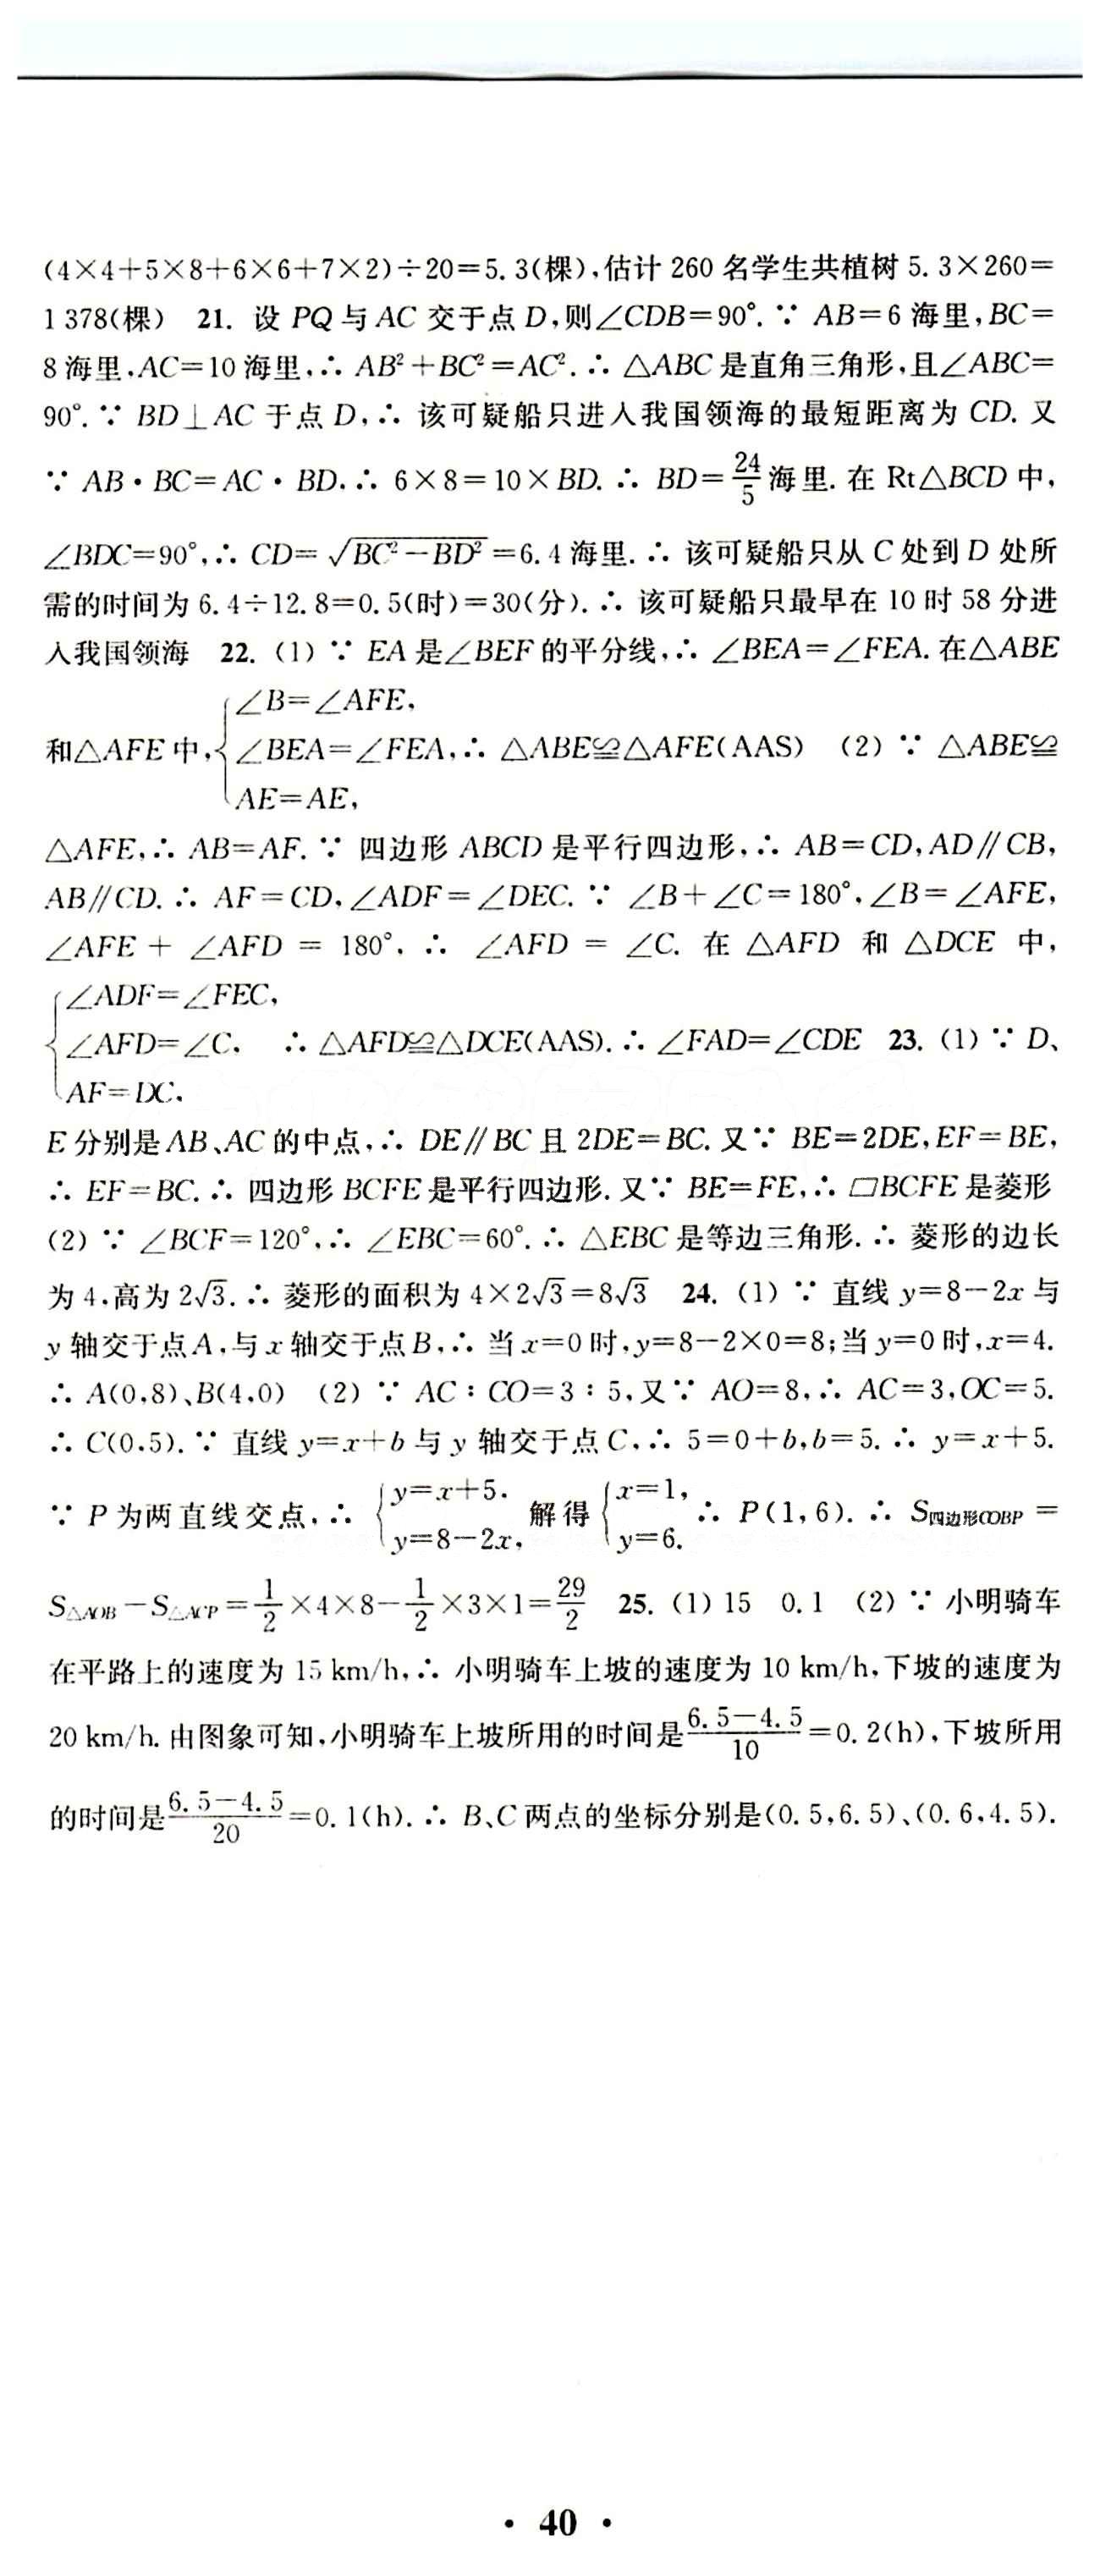 (4×4+5×8+6×6+7×2)÷20=5.3(棵),估计 260 名学生共植树 5.3×260=
1 378(棵) 21. 设 PQ 与 AC 交于点 D,则∠CDB=90°.∵ AB=6 海里,BC=
8 海里,AC=10 海里,∴ AB²+BC²=AC².∴ △ABC 是直角三角形,且∠ABC=
90°.∵ BD⊥AC 于点 D,∴ 该可疑船只进入我国领海的最短距离为 CD. 又
∵ AB·BC=AC·BD,∴ 6×8=10×BD.∴ BD=24/5 海里. 在 Rt△BCD 中,
∠BDC=90°,∴ CD=√(BC²-BD²)=6.4 海里.∴ 该可疑船只从 C 处到 D 处所
需的时间为 6.4÷12.8=0.5(时)=30(分).∴ 该可疑船只最早在 10 时 58 分进
入我国领海 22. (1) ∵ EA 是∠BEF 的平分线,∴ ∠BEA=∠FEA. 在△ABE
和△AFE 中,{∠B=∠AFE, ∠BEA=∠FEA, AE=AE, ∴ △ABE≌△AFE(AAS) (2) ∵ △ABE≌
△AFE,∴ AB=AF.∵ 四边形 ABCD 是平行四边形,∴ AB=CD,AD∥CB,
AB∥CD.∴ AF=CD,∠ADF=∠DEC.∵ ∠B+∠C=180°,∠B=∠AFE,
∠AFE+∠AFD=180°,∴ ∠AFD=∠C. 在 △AFD 和 △DCE 中,
{∠ADF=∠FEC, ∠AFD=∠C, AF=DC, ∴ △AFD≌△DCE(AAS).∴ ∠FAD=∠CDE 23. (1) ∵ D、
E 分别是 AB、AC 的中点,∴ DE∥BC 且 2DE=BC. 又∵ BE=2DE,EF=BE,
∴ EF=BC.∴ 四边形 BCFE 是平行四边形. 又∵ BE=FE,∴ ▱BCFE 是菱形
(2) ∵ ∠BCF=120°,∴ ∠EBC=60°.∴ △EBC 是等边三角形.∴ 菱形的边长
为 4,高为 2√3.∴ 菱形的面积为 4×2√3=8√3 24. (1) ∵ 直线 y=8-2x 与
y 轴交于点 A,与 x 轴交于点 B,∴ 当 x=0 时,y=8-2×0=8;当 y=0 时,x=4.
∴ A(0,8)、B(4,0) (2) ∵ AC∶CO=3∶5,又∵ AO=8,∴ AC=3,OC=5.
∴ C(0,5).∵ 直线 y=x+b 与 y 轴交于点 C,∴ 5=0+b,b=5.∴ y=x+5.
∵ P 为两直线交点,∴ {y=x+5, y=8-2x, 解得 {x=1, y=6. ∴ P(1,6).∴ S四边形COBP=
S△AOB-S△ACP=1/2×4×8-1/2×3×1=29/2 25. (1) 15 0.1 (2) ∵ 小明骑车
在平路上的速度为 15 km/h,∴ 小明骑车上坡的速度为 10 km/h,下坡的速度为
20 km/h. 由图象可知,小明骑车上坡所用的时间是(6.5-4.5)/10=0.2(h),下坡所用
的时间是(6.5-4.5)/20=0.1(h).∴ B、C 两点的坐标分别是(0.5,6.5)、(0.6,4.5).
· 40 ·